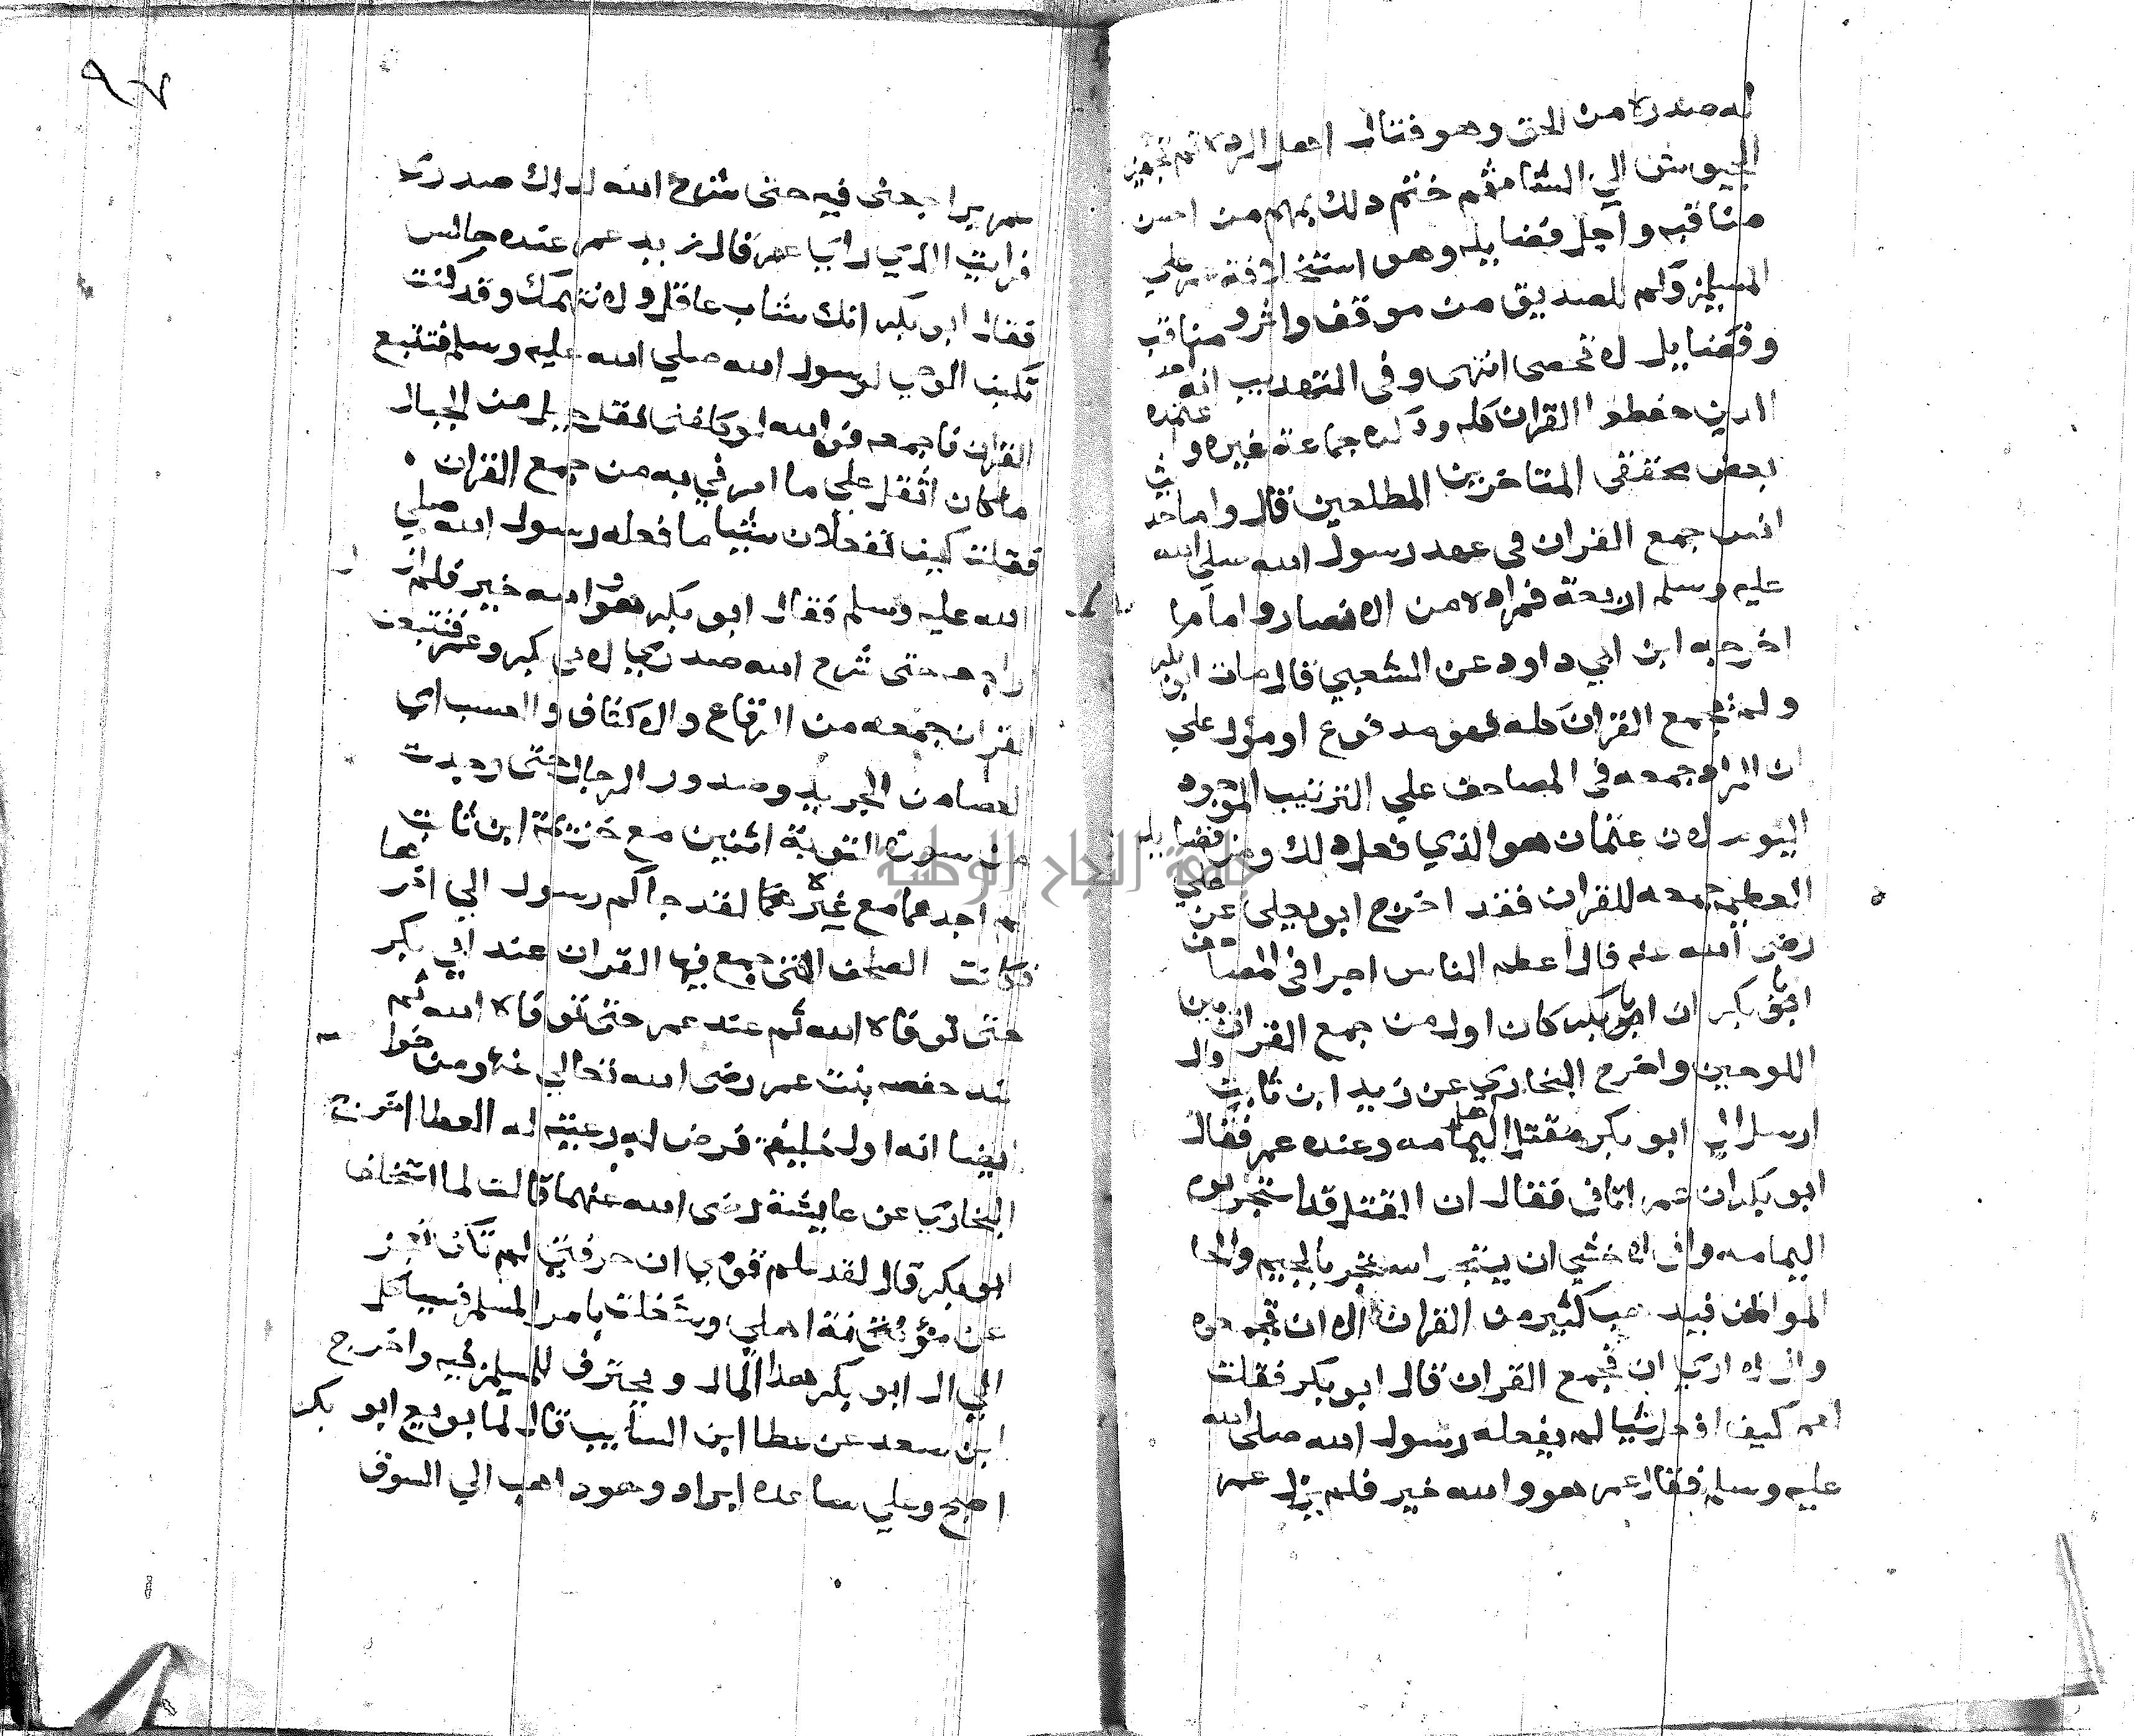 له صدره من الحق وهو قتال اهل الردة ثم تجهيز
الجيوش الي الشام ثم ختم ذلك بمهم من احسن
مناقبه واجل فضايله وهو استخلافه عمر علي
المسلمين وكم للصديق من موقف واثر ومناقب
وفضايل لا تحصى انتهى وفى التهذيب انه احد
الذين حفظوا القران كله وذكره جماعة غيره واعتمده
بعض محققى المتاخرين المطلعين قال واما حديث
انس جمع القران فى عهد رسول الله صلى الله
عليه وسلم اربعة فمراده من الانصار واما ما
اخرجه ابن ابي داود عن الشعبي قال مات ابو بكر
ولم يجمع القران كله فهو مدفوع او مؤل علي
ان المراد جمعه فى المصاحف علي الترتيب الموجود
اليوم لان عثمان هو الذي فعل ذلك ومن فضايله
العظيمة جمعه للقران فقد اخرج ابو يعلى عن علي
رضى الله عنه قال اعظم الناس اجرا فى المصاحف
ابو بكر ان ابا بكر كان اول من جمع القران بين
اللوحين واخرج البخاري عن زيد ابن ثابت قال
ارسل الي ابو بكر مقتل اهل اليمامه وعنده عمر فقال
ابو بكر ان عمر اتانى فقال ان القتل قد استحر يوم
اليمامه وانى لاخشي ان يستجر استجر بالجيم والحا
المواطن فيذهب كثير من القران الا ان تجمعوه
وانى لا اري ان تجمع القران قال ابو بكر فقلت
لعمر كيف افعل شيا لم يفعله رسول الله صلى الله
عليه وسلم فقال عمر هو والله خير فلم يزل عمر
عمر يراجعنى فيه حتى شرح الله لذلك صدري
فرايت الذي راي عمر قال زيد عمر عنده جالس
فقال ابو بكر انك شاب عاقل ولا نتهمك وقد كنت
تكتب الوحي لرسول الله صلي الله عليه وسلم فتتبع
القران فاجمعه فوالله لو كلفنى نقل جبل من الجبال
ما كان اثقل علي ما امرني به من جمع القران
فقلت كيف تفعلان شيا ما فعله رسول الله صلي
الله عليه وسلم فقال ابو بكر هو والله خير فلم ازل
اراجعه حتى شرح الله صدري لابي بكر وعمر فتتبعت
القران جمعه من الرقاع والاكتاف والعسب اي
لعصا من الجريد وصدور الرجال حتى وجدت
من سورة التوبة اثنين مع خزيمة ابن ثابت
لم اجدهما مع غيره لقد جاكم رسول الي اخرهما
فكانت الصحف التى جمع فيها القران عند ابي بكر
حتى توفاه الله ثم عند عمر حتى توفاه الله ثم
عند حفصه بنت عمر رضى الله تعالي عنها ومن
ايضا انه اول خليفة فرض له رعيته له العطا اخرج
البخاري عن عايشة رضى الله عنهما قالت لما استخلف
ابو بكر قال لقد علم قومي ان حرفتي لم تكن تعجز
عن مؤنة اهلي وشغلت بامر المسلمين فسياكل
الي ال ابو بكر هذا المال ويحترف للمسلمين فيه واخرج
ابن سعد عن عطا ابن السايب قال لما بويع ابو بكر
اصبح وعلي ساعده ابراد وهو ذاهب الي السوق
جامعة النجاح الوطنية